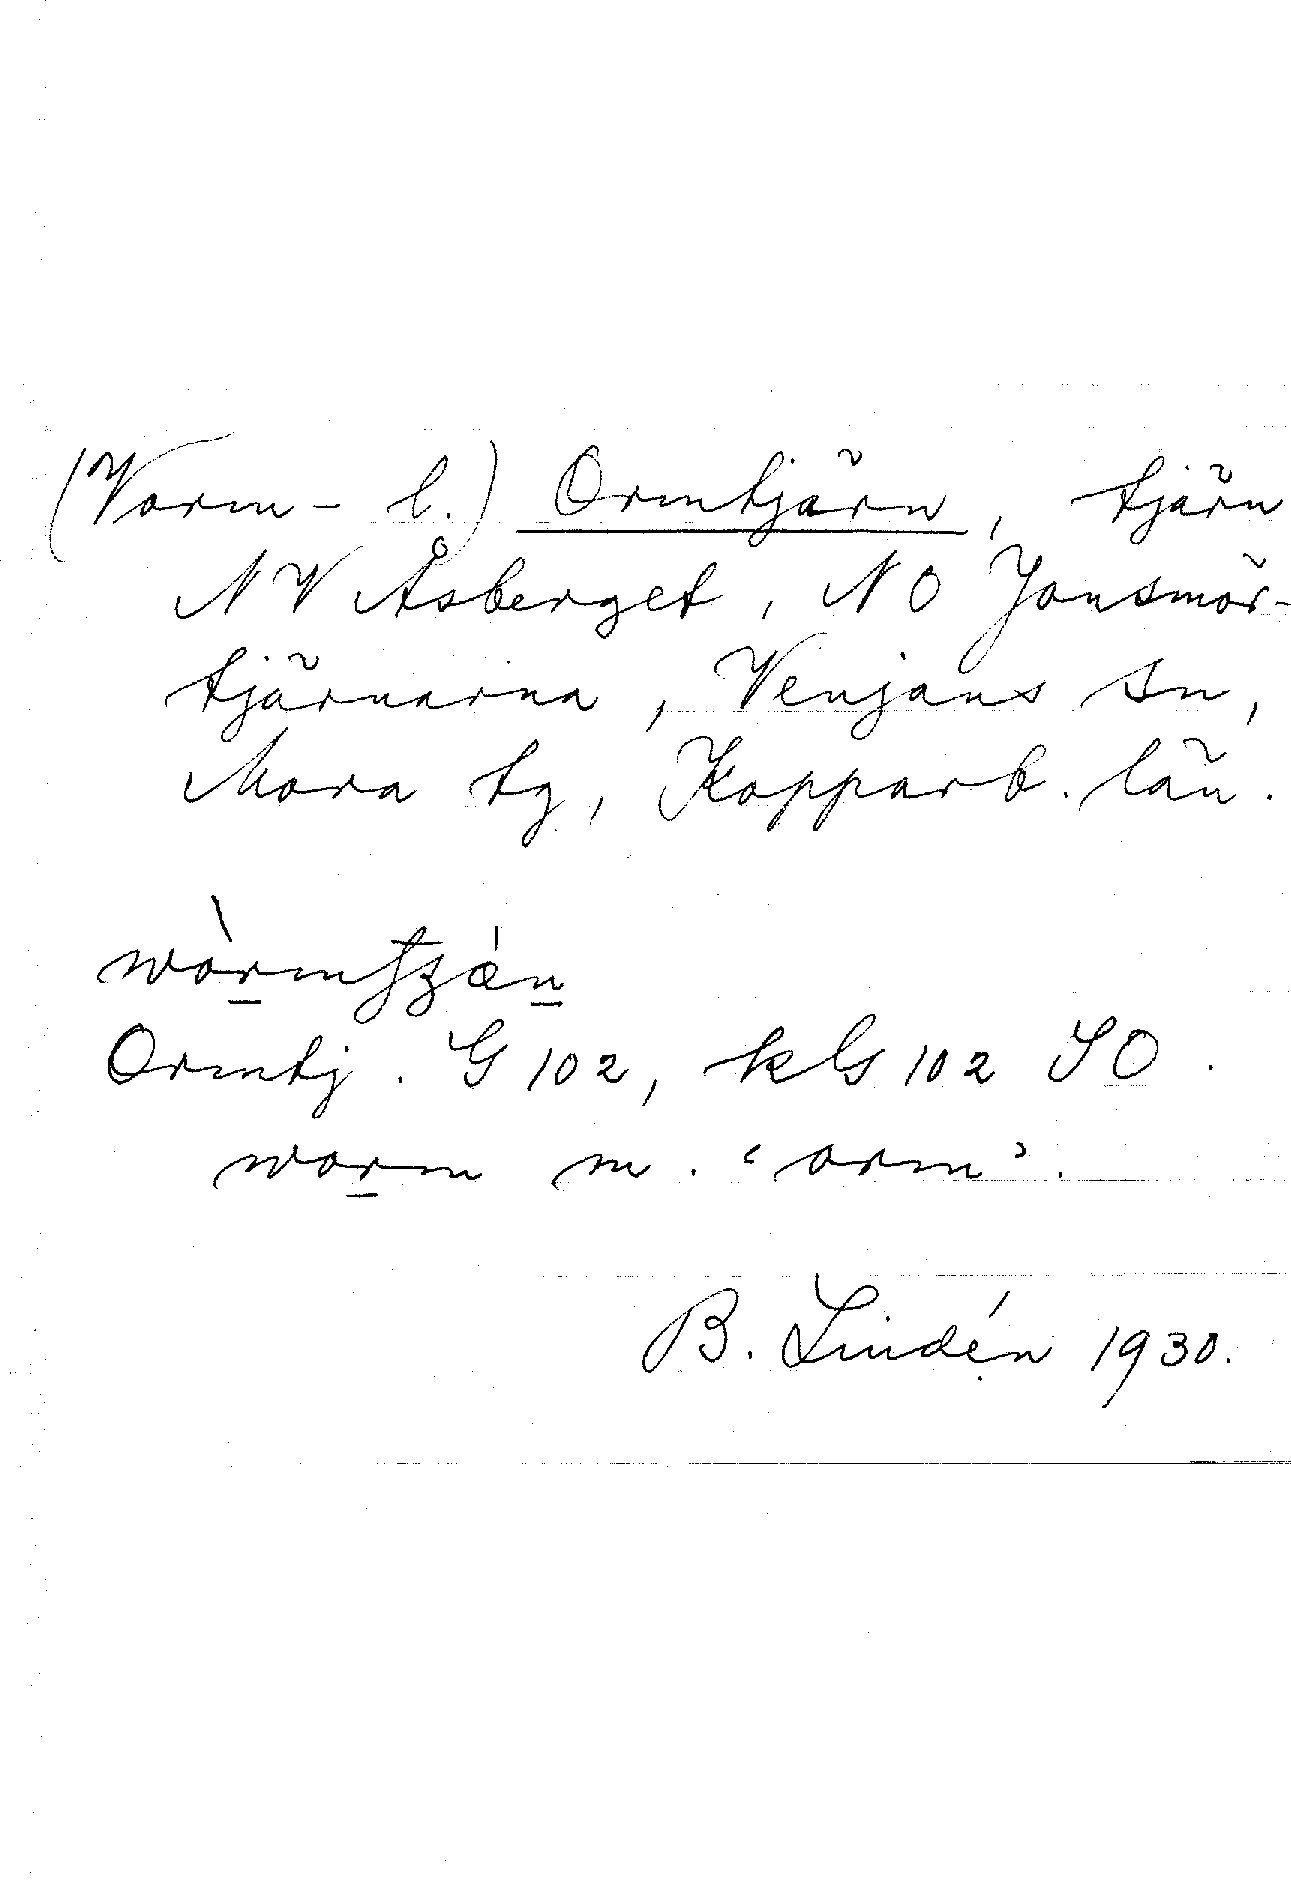 (Vorm- l.) Ormtjärn, tjärn
NV Åsberget, NO Jonsmör-
tjärnarna, Venjans sn,
Mora tg, Kopparb. län.
Ormtj. G 102, kG 102 SO.
worm m. 'orm'.
B. Lindén 1930.